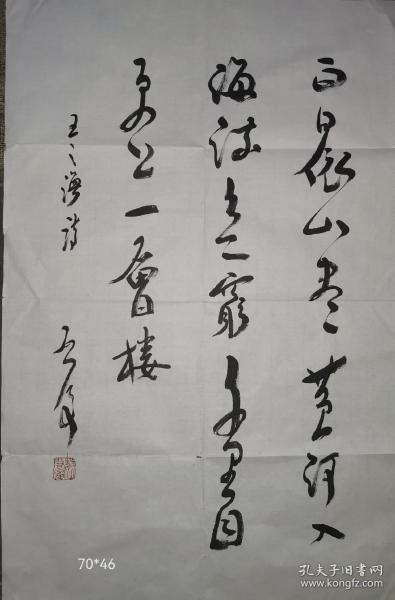 白日依山尽黄河入
海流欲窮千里目
更上一層楼
王之涣诗
70*46
孔夫子旧书网
www.kongfz.com